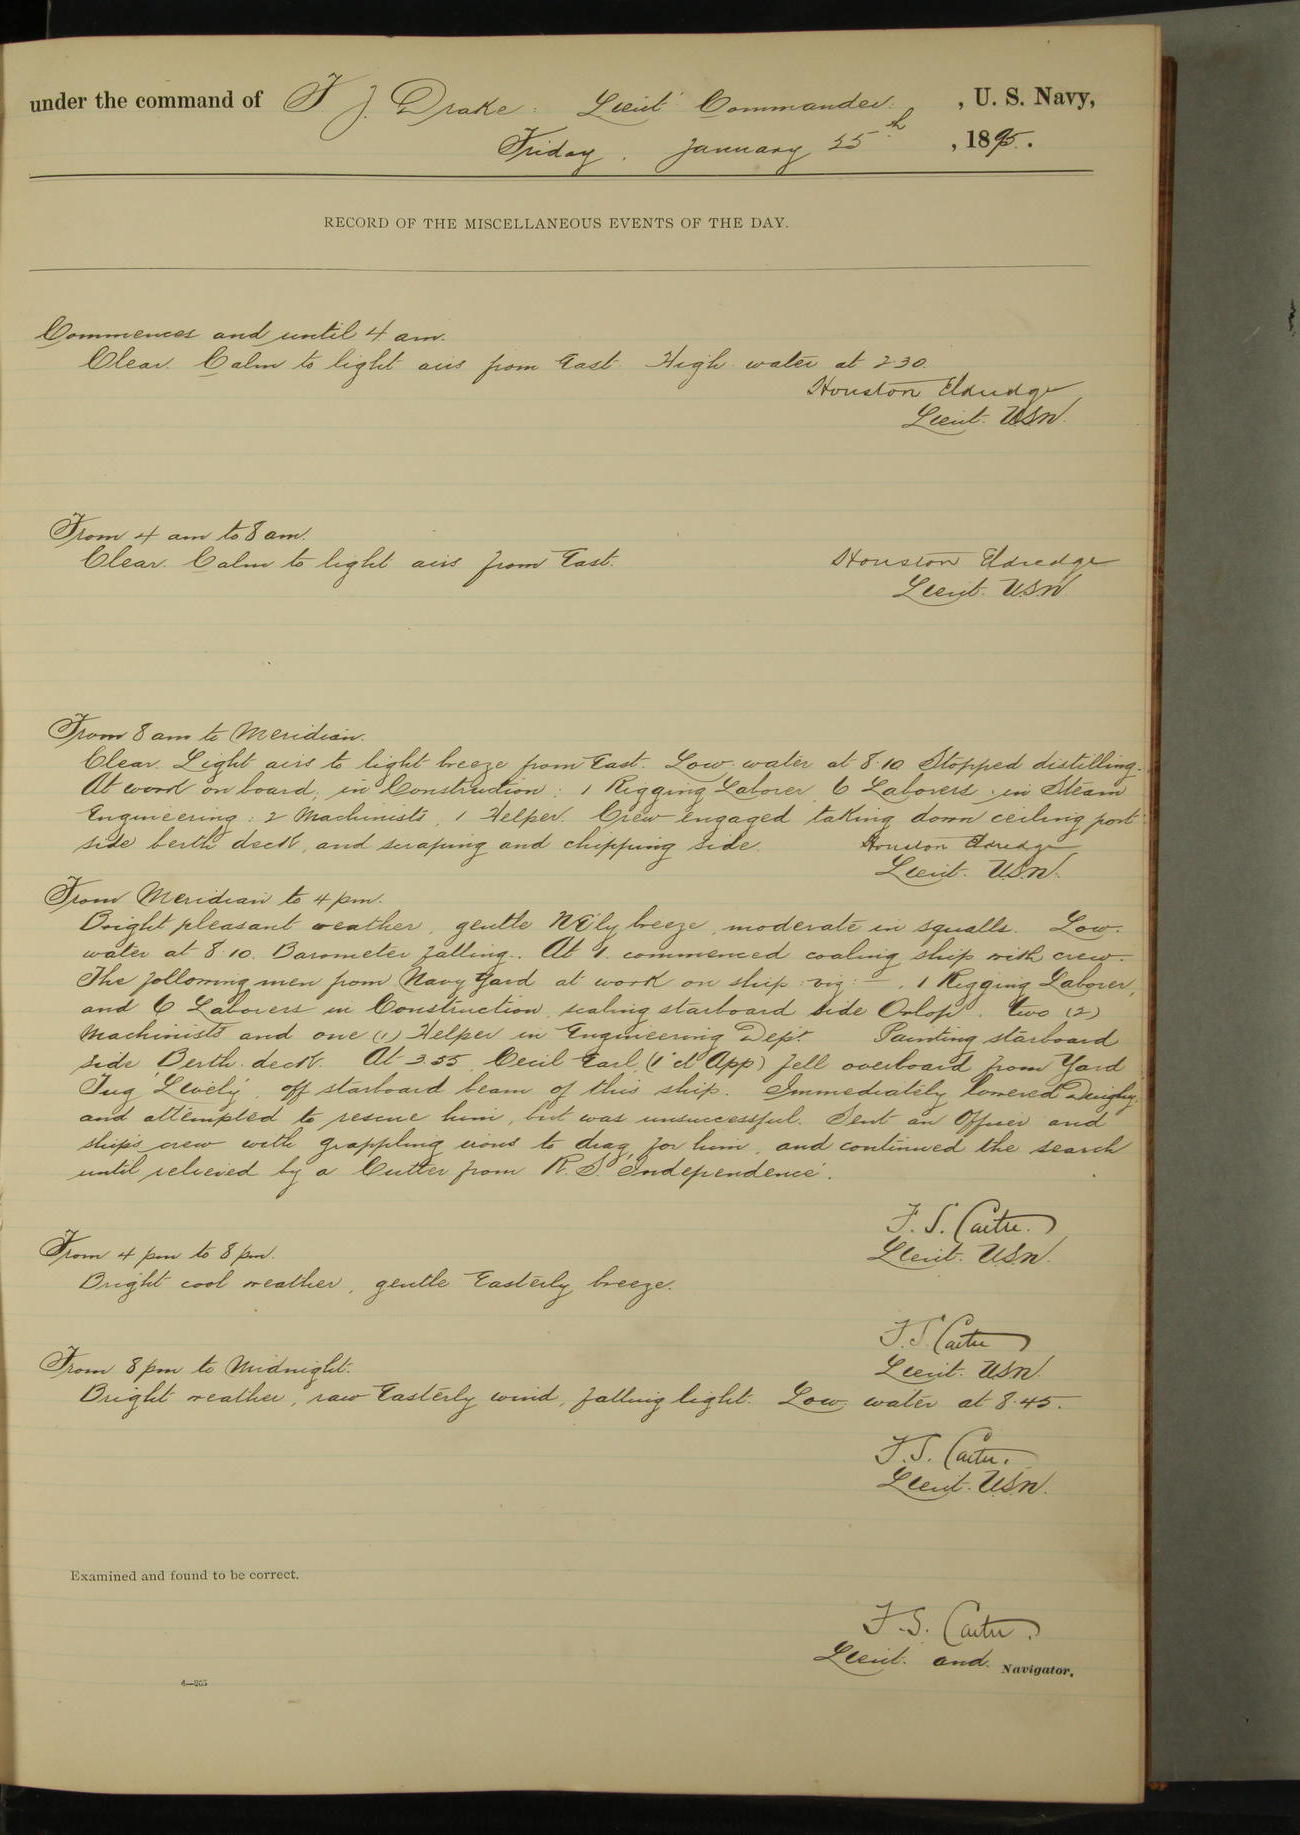 under the command of F J. Drake. Lieut Commander. , U. S. Navy,
Friday, January 25th , 1895.
RECORD OF THE MISCELLANEOUS EVENTS OF THE DAY.
Commences and until 4 am.
Clear. Calm to light airs from East. High water at 2.30.
Houston Eldredge
Lieut. USN.
From 4 am to 8 am.
Clear. Calm to light airs from East.
Houston Eldredge
Lieut. USN
From 8 am to Meridian.
Clear. Light airs to light breeze from East. Low water at 8.10 Stopped distilling.
At work on board; in Construction: 1 Rigging Laborer, 6 Laborers; in Steam
Engineering: 2 Machinists, 1 Helper. Crew engaged taking down ceiling port
side berth deck, and scraping and chipping side.
Houston Eldredge
Lieut. USN.
From Meridian to 4 pm.
Bright pleasant weather, gentle NE'ly breeze, moderate in squalls. Low
water at 8.10. Barometer falling. At 1. commenced coaling ship with crew.
The following men from Navy Yard at work on ship: viz: - . 1 Rigging Laborer,
and 6 Laborers in Construction, scaling starboard side Orlop. Two (2)
Machinists and one (1) Helper in Engineering Dep't. Painting starboard
side Berth deck. At 3.55, Cecil Earl, (1 cl App) fell overboard from Yard
Tug 'Lively', off starboard beam of this ship. Immediately lowered Dinghy
and attempted to rescue him, but was unsuccessful. Sent an Officer and
ship's crew with grappling irons to drag for him, and continued the search
until relieved by a Cutter from R. S. 'Independence'.
F. S. Carter.
Lieut. USN.
From 4 pm to 8 pm.
Bright cool weather, gentle Easterly breeze.
F. S. Carter
Lieut. USN.
From 8 pm to Midnight.
Bright weather, raw Easterly wind, falling light. Low water at 8.45.
F. S. Carter.
Lieut. USN.
Examined and found to be correct.
F. S. Carter.
Lieut. and Navigator.